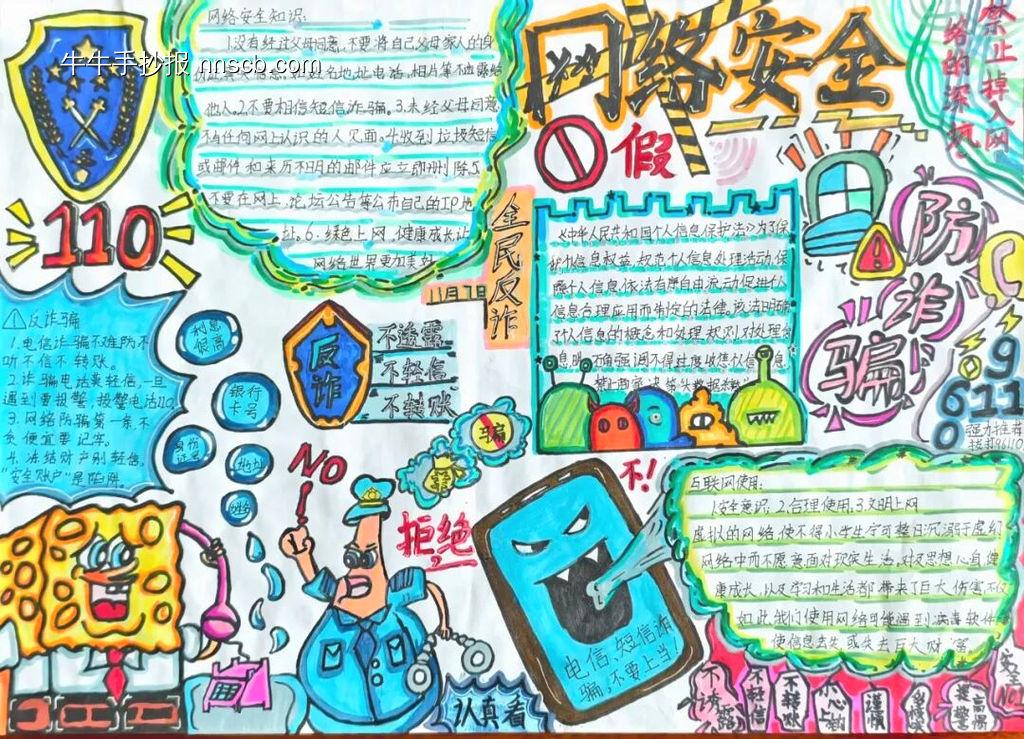 牛牛手抄报 nnscb.com
网络安全知识:
1.没有经过父母同意,不要将自己父母家人的身
地址电话,相片等不透露给
他人2.不要相信短信诈骗。3.未经父母同意
不与任何网上认识的人见面。4.收到垃圾短信
或邮件和来历不明的邮件应立即删除5.
不要在网上,论坛公告等公布自己的IP地
址。6.绿色上网,健康成长让
网络世界更加美好
网络安全
禁止掉入网
络的深坑
假
110
全民反诈
11月7日
《中华人民共和国个人信息保护法》为了保
护个信息权益,规范个人信息处理活动,保
障个人信息依法有序自由流动促进个人
信息合理应用而制定的法律。该法明确
了个人信息的概念和处理规则,对处理
防
诈
骗
96110
强力推荐
拨打96110
反诈骗
1.电信诈骗不难防不
听不信不转账。
2.诈骗电话莫轻信,一旦
遇到要报警,报警电话110
3.网络防骗第一条,不
贪便宜要记牢。
4.冻结财产别轻信,
"安全账户"是陷阱。
利息
很高
银行
卡号
身份
证号
地址
姓名
反诈
不透露
不轻信
不转账
骗
NO!
拒绝
不!
电信,短信诈
骗,不要上当!
认真看
互联网使用:
1安全意识,2.合理使用,3.文明上网
虚拟的网络,使不得小学生宁可整日沉溺于虚幻
网络中而不愿意面对现实生活,对及思想心且健
康成长,以及学习和生活都带来了巨大伤害不仅
如此我们使用网络可能遇到病毒软件
使信息丢失,或失去巨大财富。
不轻信
不转账
小心上
谨慎
提高警惕
安全NO1